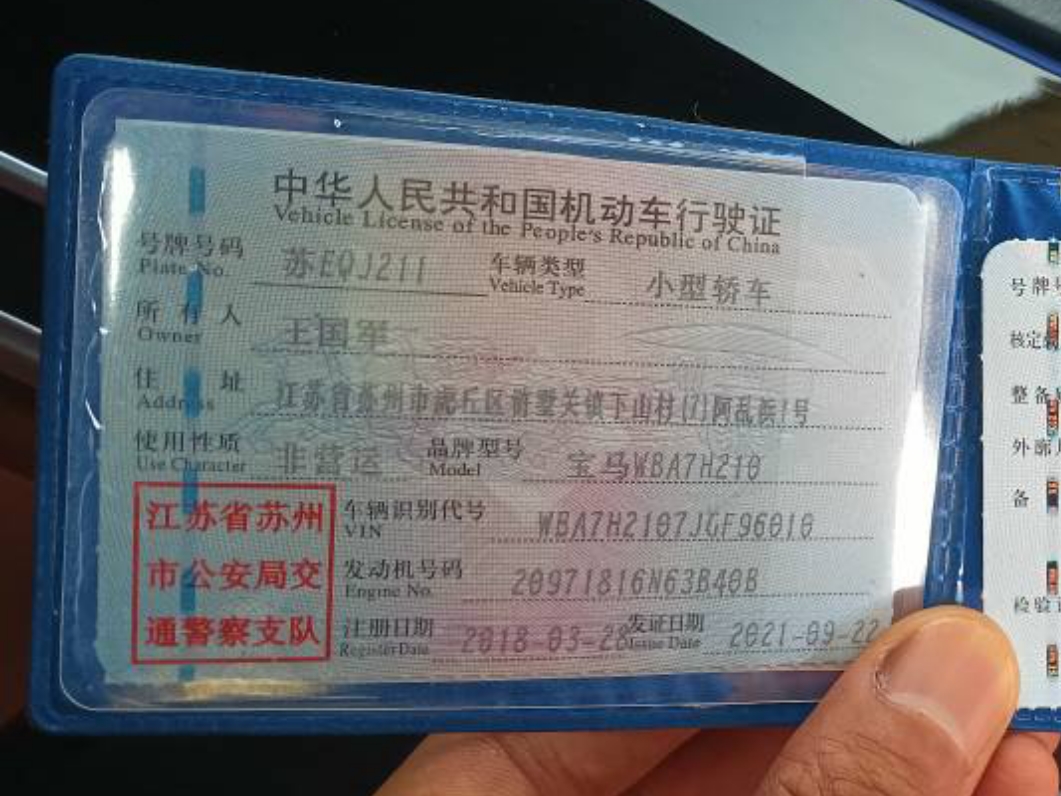 中华人民共和国机动车行驶证
Vehicle License of the People's Republic of China
号牌号码 苏EQJ211 车辆类型 小型轿车
Plate No. Vehicle Type
所有人 王国军
Owner
住址 江苏省苏州市虎丘区浒墅关镇下山村(7)阿乱浜1号
Address
使用性质 非营运 品牌型号 宝马WBA7H210
Use Character Model
江苏省苏州
市公安局交
通警察支队
车辆识别代号 WBA7H2107JGF96010
VIN
发动机号码 20971816N63B40B
Engine No.
注册日期 2018-03-28 发证日期 2021-09-22
Register Date Issue Date
号牌
核定
整备
外廓
备
检验